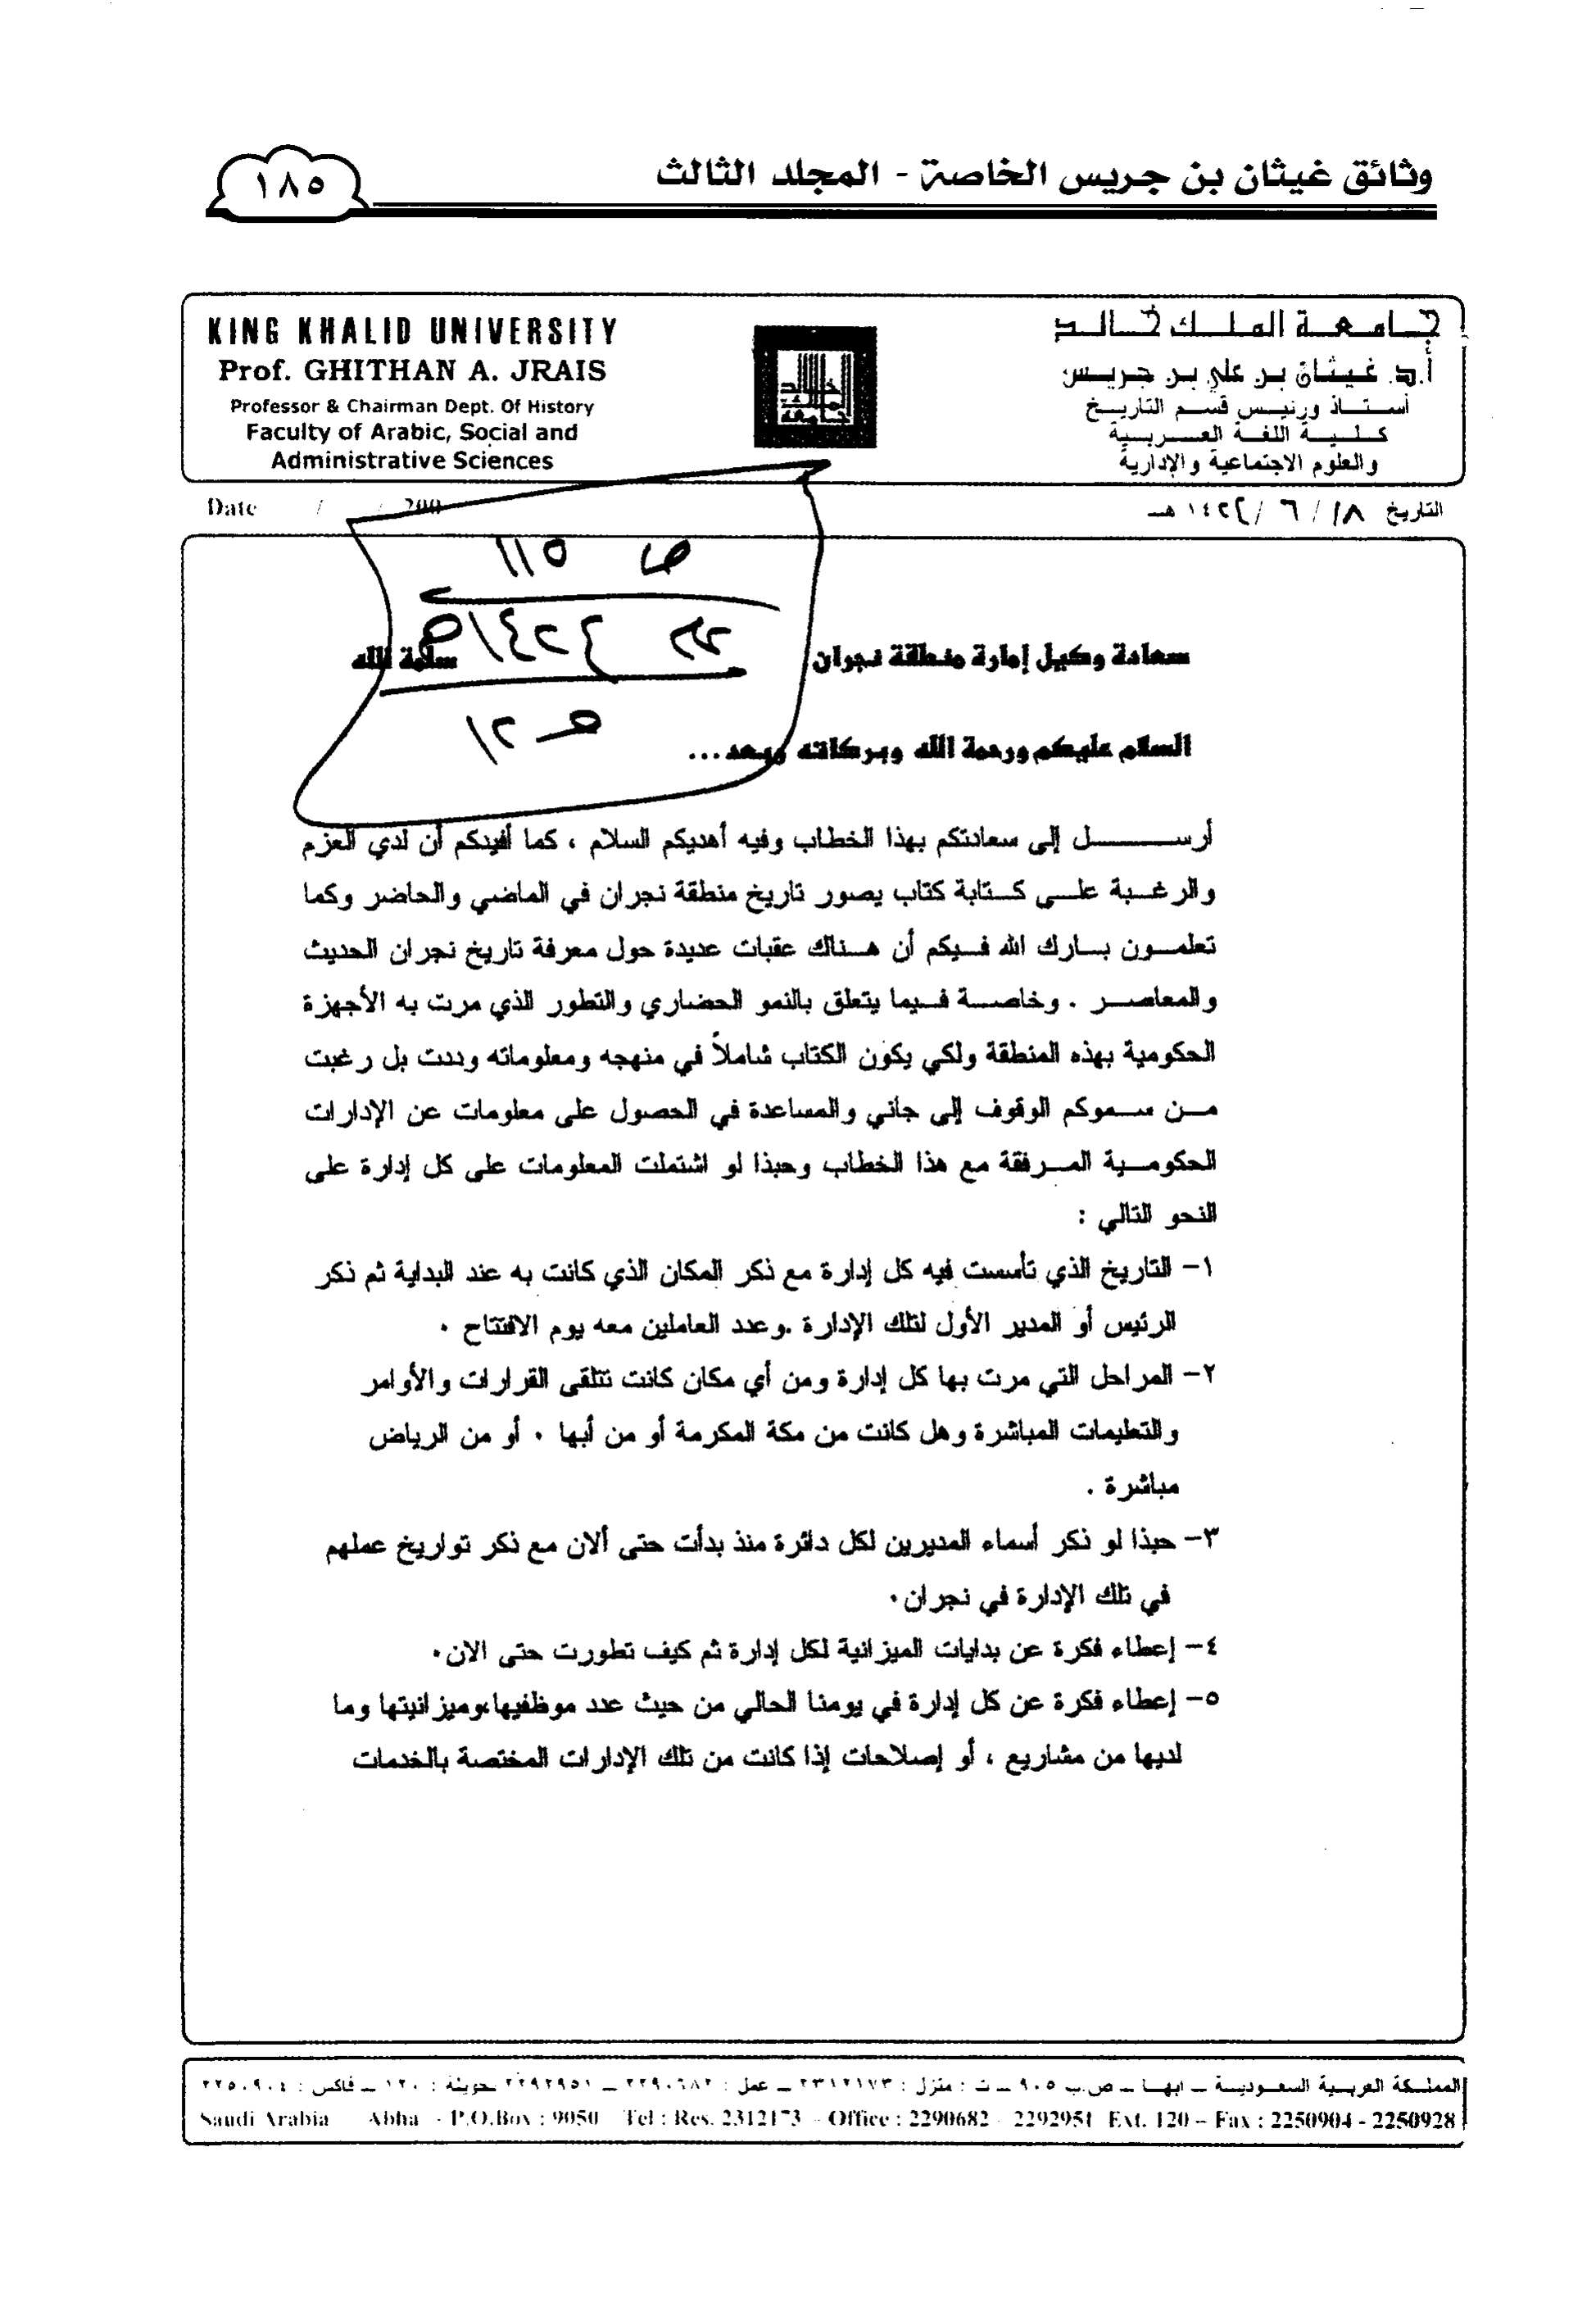 وثائق غيثان بن جريس الخاصة - المجلد الثالث
١٨٥
KING KHALID UNIVERSITY
Prof. GHITHAN A. JRAIS
Professor & Chairman Dept. Of History
Faculty of Arabic, Social and
Administrative Sciences
جامعة الملك خالد
أ.د. غيثان بن علي بن جريس
أستاذ ورئيس قسم التاريخ
كلية اللغة العربية
والعلوم الاجتماعية والإدارية
Date / / 200
التاريخ ١٨ / ٦ / ١٤٢٢ هـ
ص ١١٥
سعادة وكيل إمارة منطقة نجران سلمة الله
السلام عليكم ورحمة الله وبركاته وبعد...
أرسل إلى سعادتكم بهذا الخطاب وفيه أهديكم السلام ، كما أفيدكم أن لدي العزم
والرغبة على كتابة كتاب يصور تاريخ منطقة نجران في الماضي والحاضر وكما
تعلمون بارك الله فيكم أن هناك عقبات عديدة حول معرفة تاريخ نجران الحديث
والمعاصر . وخاصة فيما يتعلق بالنمو الحضاري والتطور الذي مرت به الأجهزة
الحكومية بهذه المنطقة ولكي يكون الكتاب شاملاً في منهجه ومعلوماته وددت بل رغبت
من سموكم الوقوف إلى جاني والمساعدة في الحصول على معلومات عن الإدارات
الحكومية المرفقة مع هذا الخطاب وحبذا لو اشتملت المعلومات على كل إدارة على
النحو التالي :
١- التاريخ الذي تأسست فيه كل إدارة مع ذكر المكان الذي كانت به عند البداية ثم ذكر
الرئيس أو المدير الأول لتلك الإدارة .وعدد العاملين معه يوم الافتتاح ٠
٢- المراحل التي مرت بها كل إدارة ومن أي مكان كانت تتلقى القرارات والأوامر
والتعليمات المباشرة وهل كانت من مكة المكرمة أو من أبها ٠ أو من الرياض
مباشرة .
٣- حبذا لو ذكر أسماء المديرين لكل دائرة منذ بدأت حتى ألان مع ذكر تواريخ عملهم
في تلك الإدارة في نجران٠
٤- إعطاء فكرة عن بدايات الميزانية لكل إدارة ثم كيف تطورت حتى الان٠
٥- إعطاء فكرة عن كل إدارة في يومنا الحالي من حيث عدد موظفيها،وميزانيتها وما
لديها من مشاريع ، أو إصلاحات إذا كانت من تلك الإدارات المختصة بالخدمات
المملكة العربية السعودية ــ ابها ــ ص.ب ٩٠٥ ــ ت : منزل : ٢٣١٢١٧٣ ــ عمل : ٢٢٩٠٦٨٢ ــ ٢٢٩٢٩٥١ تحويلة : ١٢٠ ــ فاكس : ٢٢٥٠٩٠٤
Saudi Arabia Abha - P.O.Box : 9050 Tel : Res. 2312173 - Office : 2290682 - 2292951 Ext. 120 – Fax : 2250904 - 2250928